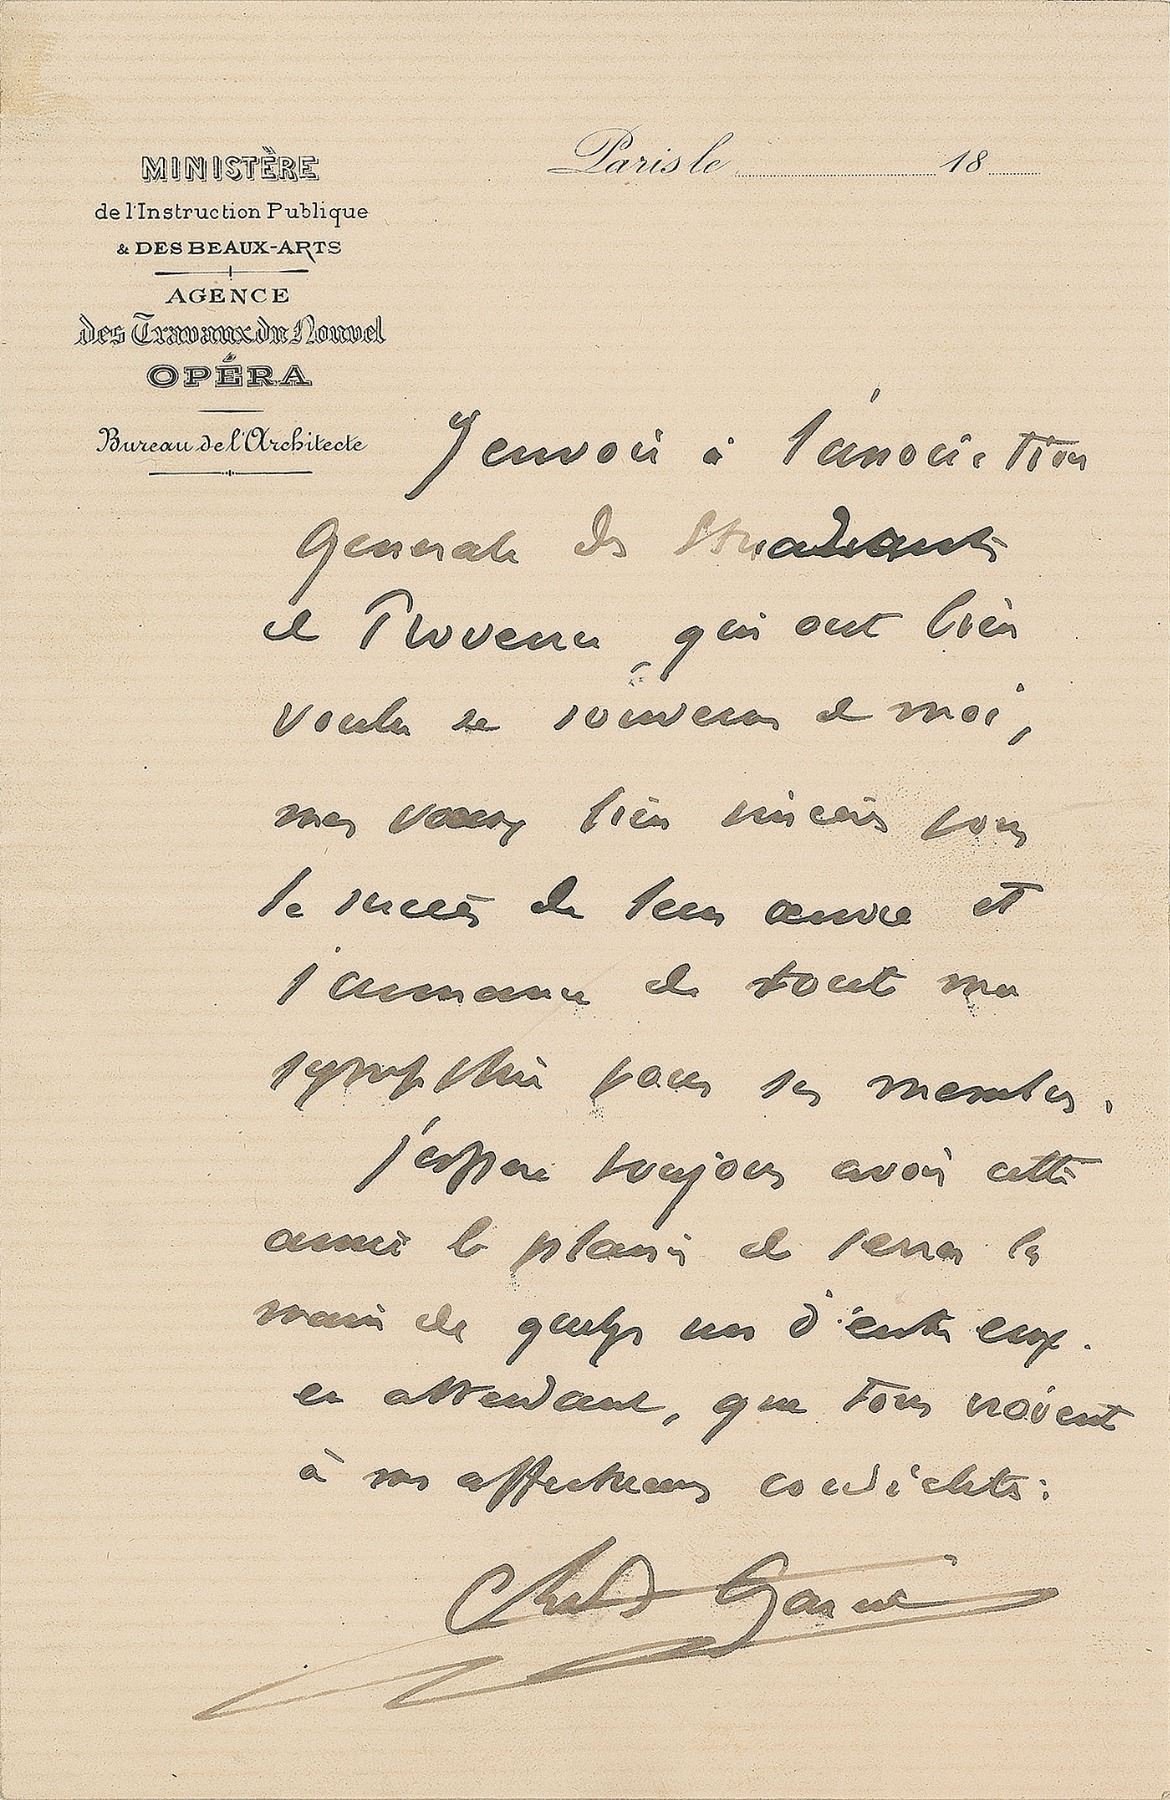 MINISTÈRE
de l'Instruction Publique
& DES BEAUX-ARTS
AGENCE
des Travaux du Nouvel
OPÉRA
Bureau de l'Architecte
Paris le 18
J'envoie à l'association
Generale des Etudiants
de Provence qui ont bien
voulu se souvenir de moi,
mes vœux bien sincères pour
le succès de leur œuvre et
l'assurance de toute ma
sympathie pour ses membres.
j'espere toujours avoir cette
année le plaisir de serrer la
main de quelqu'un d'entre eux.
en attendant, que tous croient
à mes affectueuses cordialités:
Charles Garnier